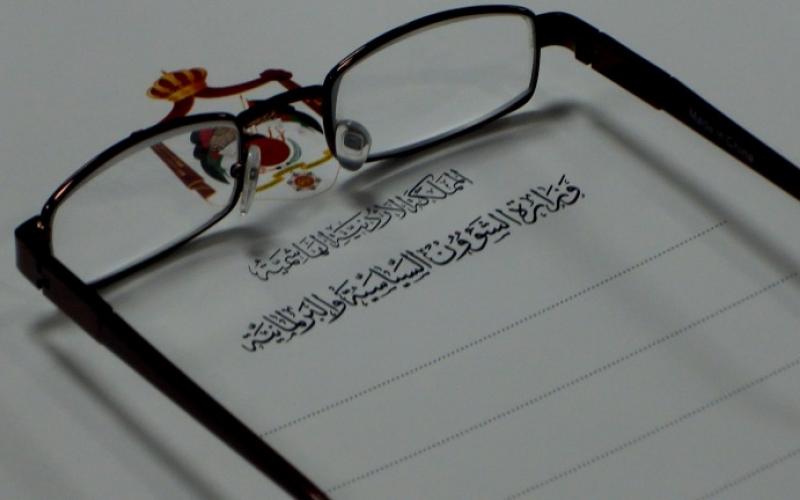 المملكة الأردنية الهاشمية
وزارة الشؤون السياسية والبرلمانية
Made in China